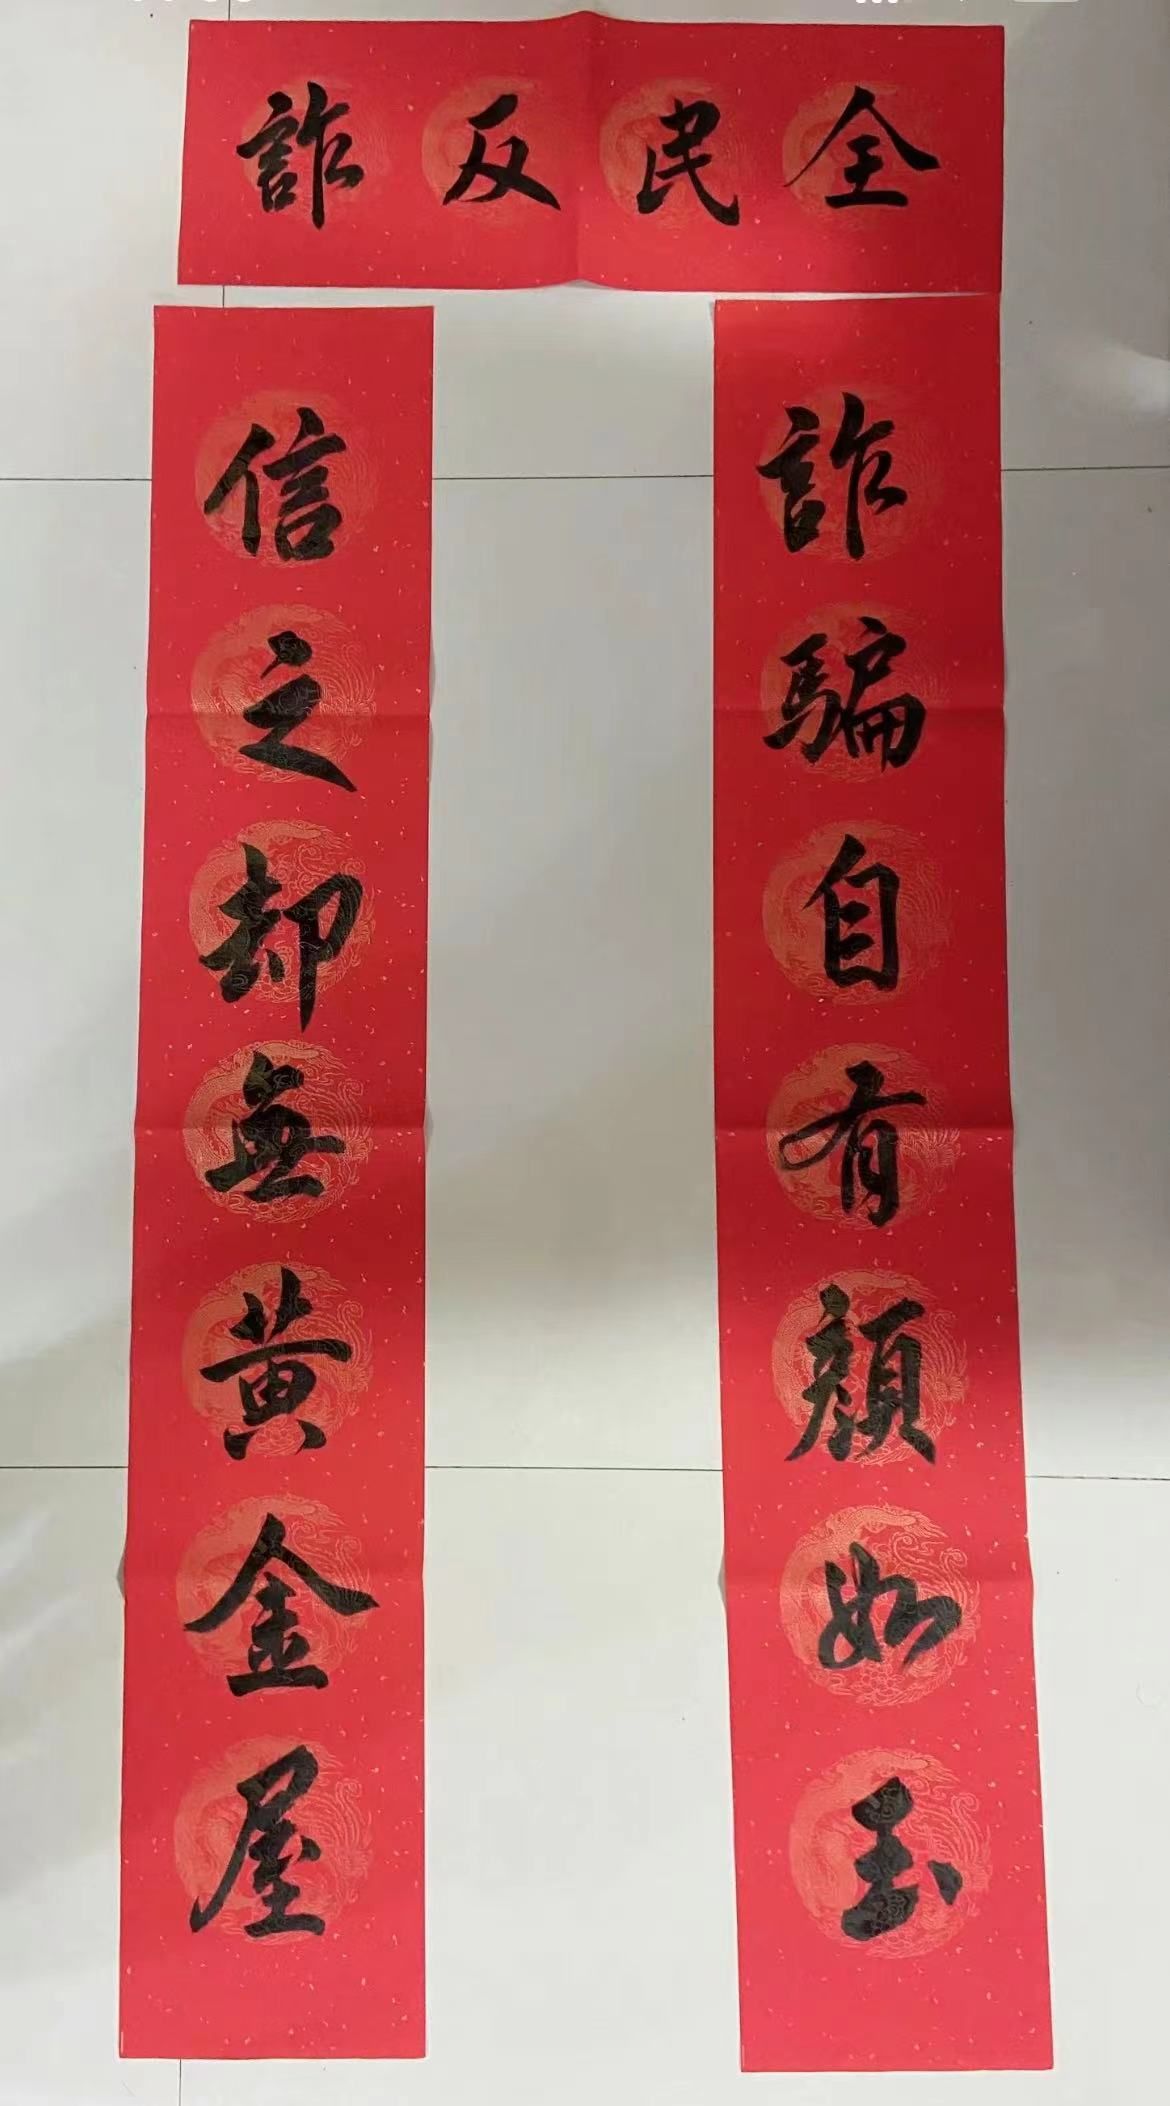 全民反詐
詐騙自有顔如玉
信之却無黄金屋